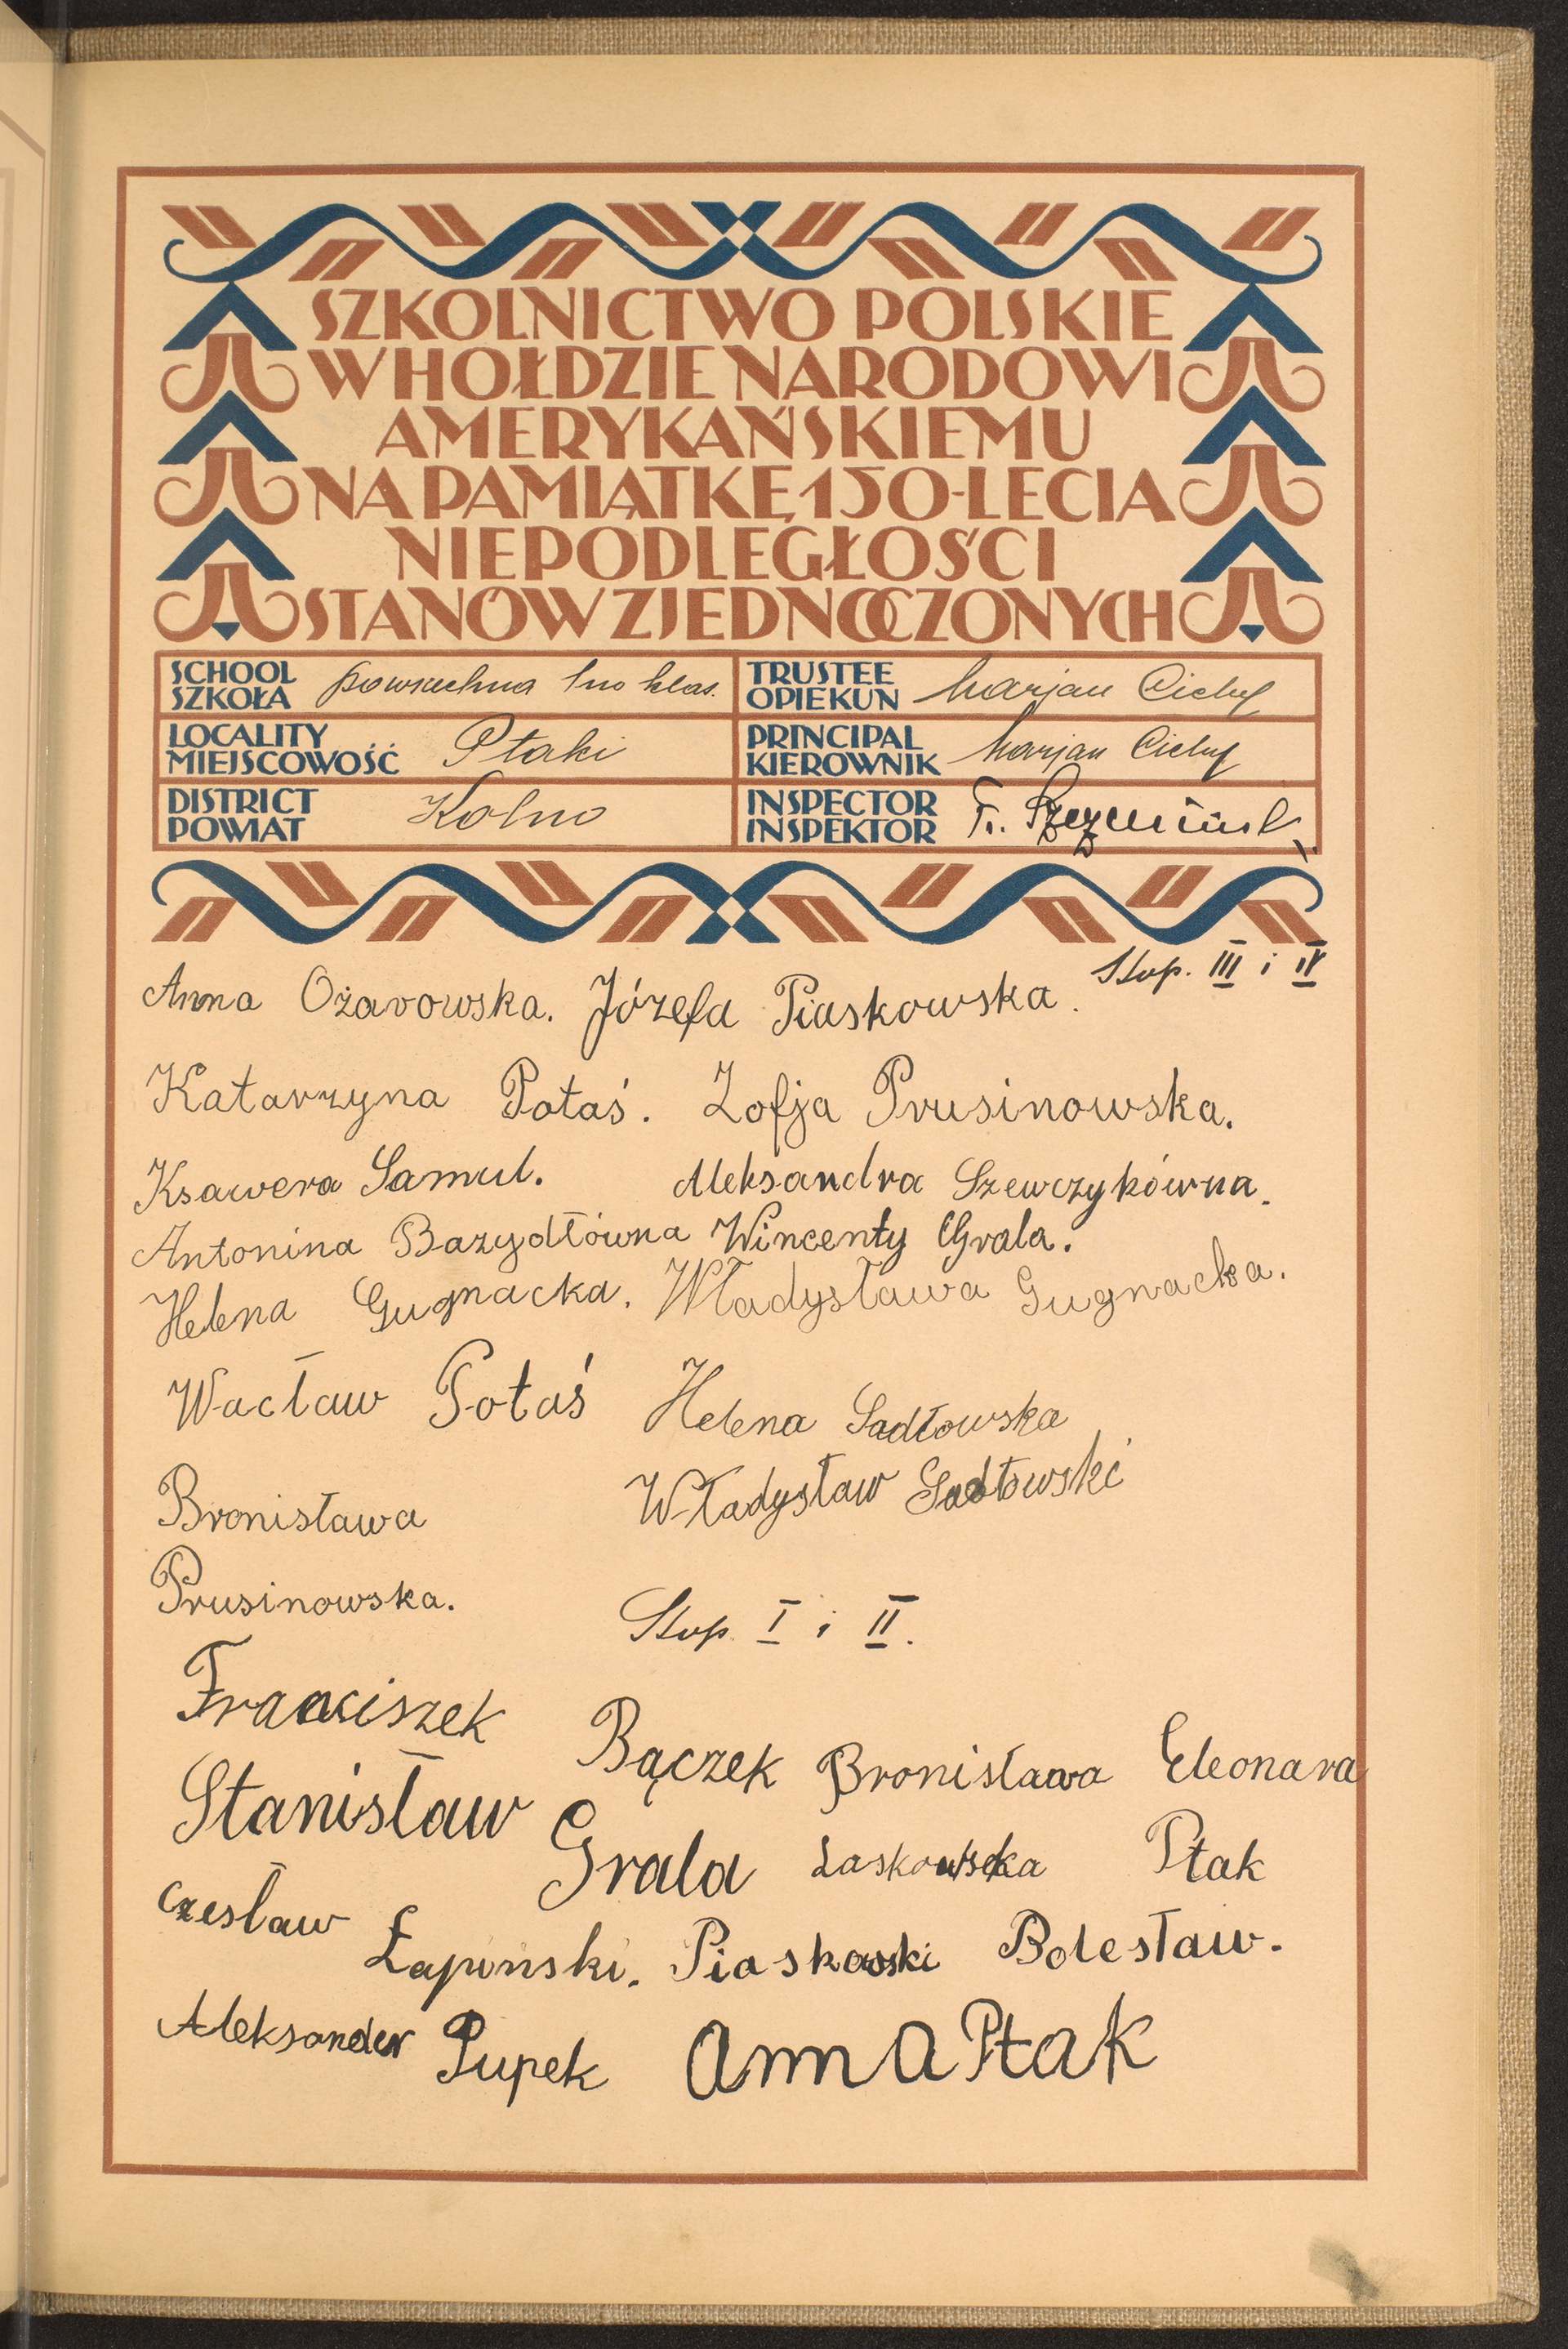 SZKOLNICTWO POLSKIE
W HOŁDZIE NARODOWI
AMERYKAŃSKIEMU
NA PAMIĄTKĘ 150-LECIA
NIEPODLEGŁOŚCI
STANÓW ZJEDNOCZONYCH
SCHOOL
SZKOŁA powszechna 1no klas.
TRUSTEE
OPIEKUN Marjan Cichy
LOCALITY
MIEJSCOWOŚĆ Ptaki
PRINCIPAL
KIEROWNIK Marjan Cichy
DISTRICT
POWIAT Kolno
INSPECTOR
INSPEKTOR Fr.
Stop. III i IV
Anna Ożarowska. Józefa Piaskowska.
Katarzyna Potaś. Zofja Prusinowska.
Ksawera Samul. Aleksandra Szewczykówna.
Antonina Bazydłówna Wincenty Grala.
Helena Gugnacka. Władysława Gugnacka.
Wacław Potaś Helena Sadłowska
Bronisława Władysław Sadłowski
Prusinowska.
Stop. I i II.
Franciszek Bączek Bronisława Eleonara
Stanisław Grala Laskowska Ptak
Czesław Łapiński. Piaskowski Bolesław.
Aleksander Pupek Anna Ptak